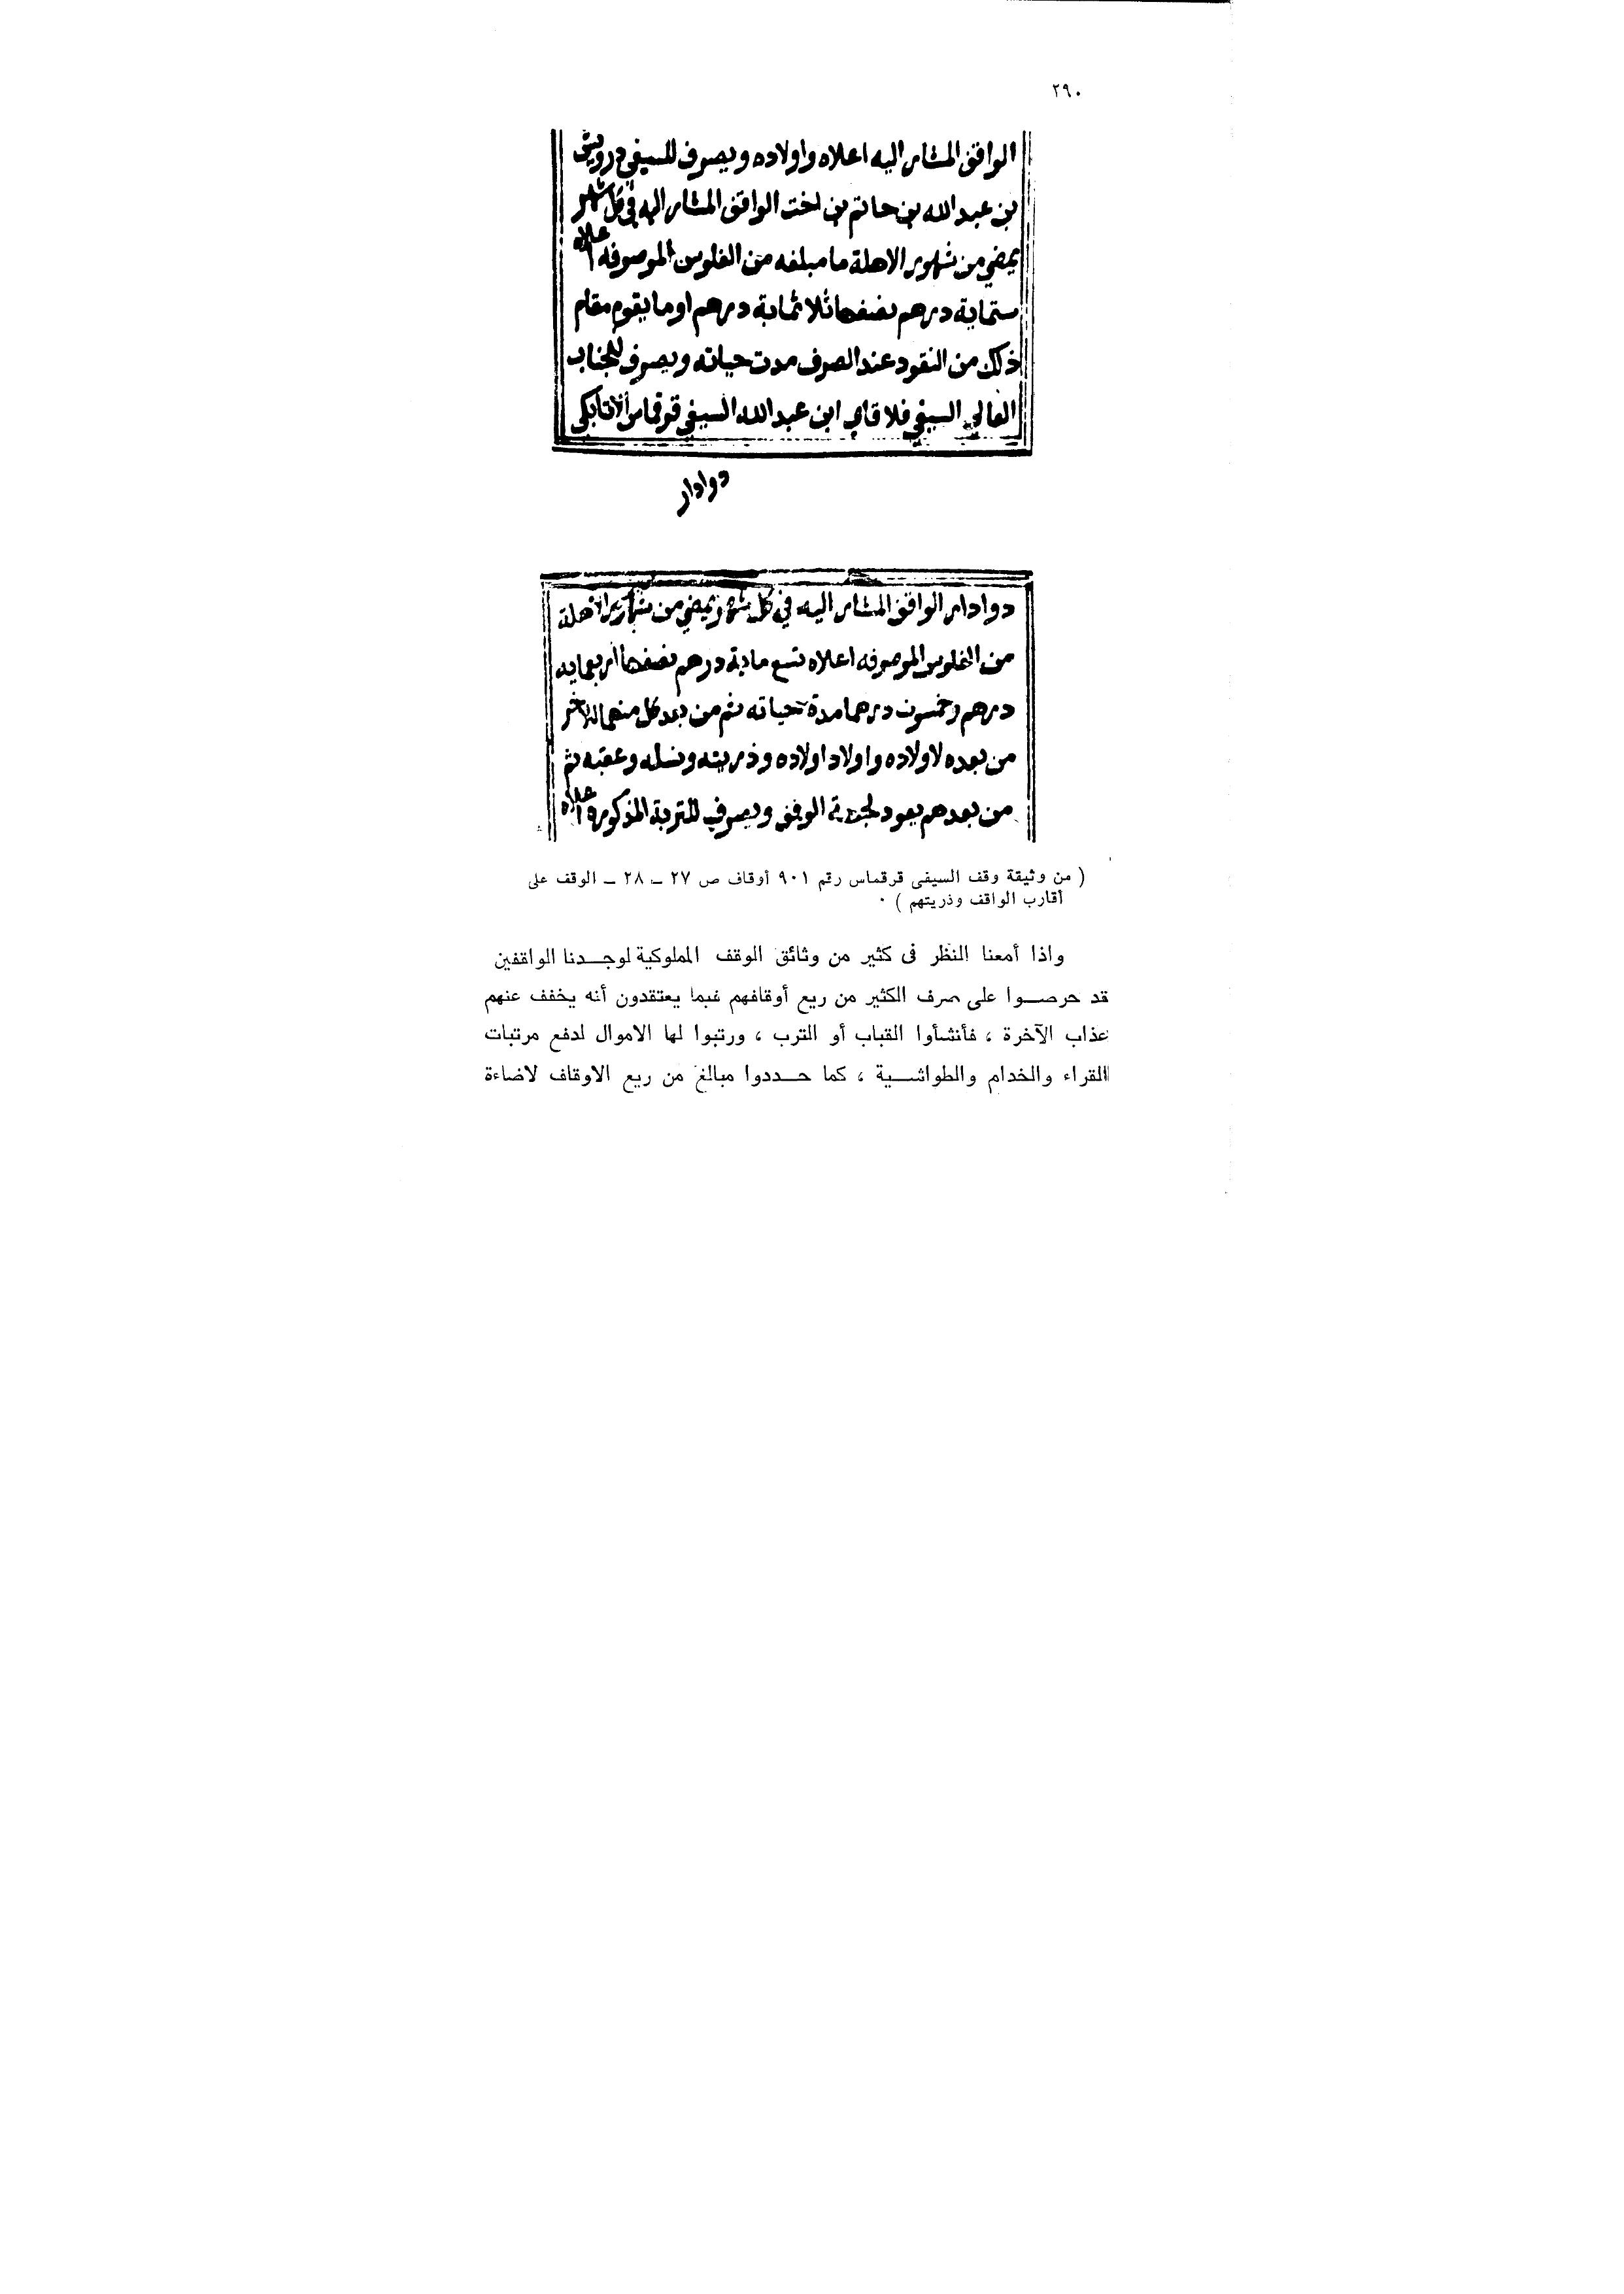 ٢٩٠
الواقف المشار اليه اعلاه واولاده ويصرف للسيفي درويش
بن عبد الله بن حاتم بن اخت الواقف المشار اليه في كل شهر
يمضي من شهور الاهلة ما مبلغه من الفلوس الموصوفه اعلاه
ستماية درهم نصفها ثلاثماية درهم او ما يقوم مقام
ذلك من النقود عند الصرف مدت حياته ويصرف للجناب
العالي السيفي فلاقاي ابن عبد الله السيفي قرقماس الاتابكي
دوادار
دوادار الواقف المشار اليه في كل شهر يمضي من شهور الاهلة
من الفلوس الموصوفه اعلاه تسع ماية درهم نصفها اربعمايه
درهم وخمسون درهما مدة حياته ثم من بعد كل منهما للاخر
من بعده لاولاده واولاد اولاده وذريته ونسله وعقبه ثم
من بعدهم يعود لجهة الوقف ويصرف للتربة المذكورة اعلاه
( من وثيقة وقف السيفى قرقماس رقم ٩٠١ أوقاف ص ٢٧ – ٢٨ – الوقف على
أقارب الواقف وذريتهم ) ٠
واذا أمعنا النظر فى كثير من وثائق الوقف المملوكية لوجـدنا الواقفين
قد حرصـوا على صرف الكثير من ريع أوقافهم فيما يعتقدون أنه يخفف عنهم
عذاب الآخرة ، فأنشأوا القباب أو الترب ، ورتبوا لها الاموال لدفع مرتبات
القراء والخدام والطواشـية ، كما حـددوا مبالغ من ريع الاوقاف لاضاءة